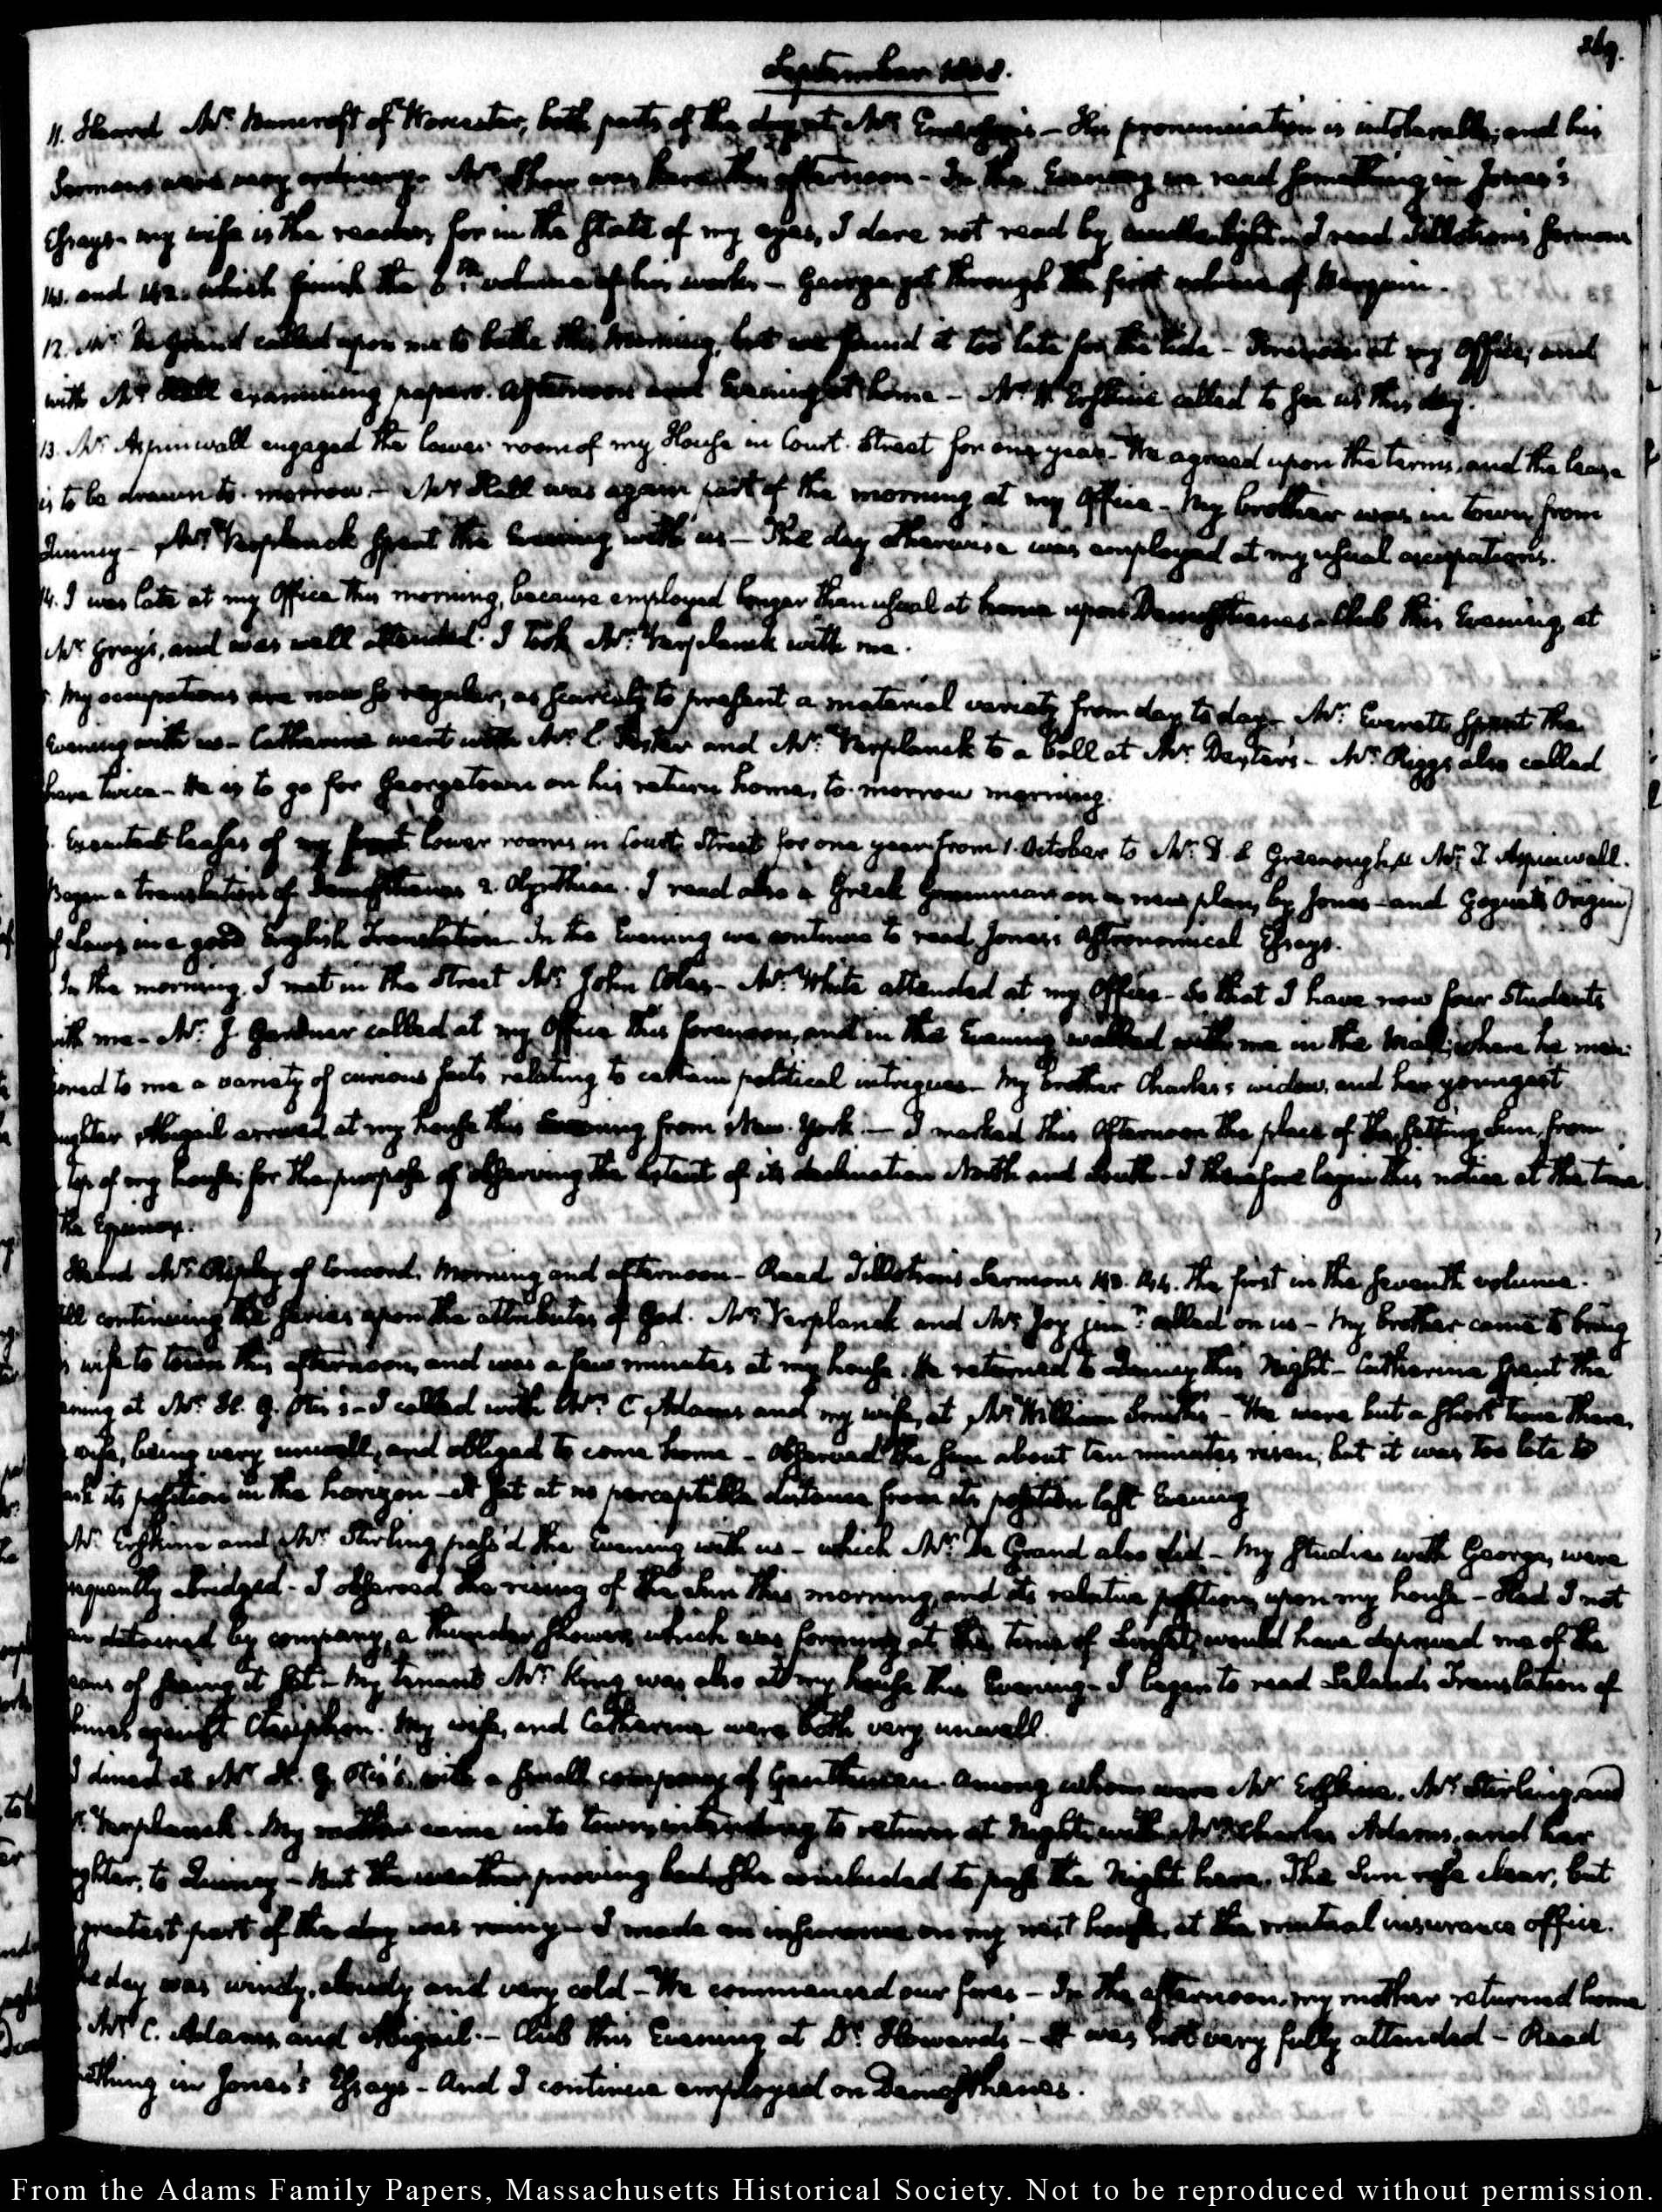 269.
September 1808.
11. Heard Mr. Bancroft of Worcester, both parts of the day at Mr. Emerson's – His pronunciation is intolerable; and his
Sermons were very ordinary. Mr. Shaw was here this afternoon – In the Evening we read something in Jones's
Essays – my wife is the reader, for in the State of my eyes, I dare not read by candle light – I read Tillotson's Sermons
141. and 142. which finish the 6th. volume of his works – George got through the first volume of
12. Mr. De Grand called upon me to bathe this morning, but we found it too late for the tide – Forenoon at my Office, and
with Mr. Hall examining papers. Afternoon and Evening at home – Mr. Erskine called to see us this day.
13. Mr. Aspinwall engaged the lower room of my House in Court-Street for one year – We agreed upon the terms, and the lease
is to be drawn to-morrow – Mr. Hall was again part of the morning at my Office – My brother was in town from
Quincy – Mr. Verplanck spent the Evening with us – The day otherwise was employed at my usual occupations.
14. I was late at my Office this morning, because employed longer than usual at home upon Demosthenes – Club this Evening, at
Mr. Gray's, and was well attended. I took Mr. Verplanck with me.
My occupations are now so regular, as scarcely to present a material variety from day to day – Mr. Everett spent the
Evening with us – Catherine went with Mr. and Mr. Verplanck to a ball at Mr. Dexter's – Mr. Riggs also called
here twice – He is to go for Georgetown on his return home, to-morrow morning.
Executed leases of my front lower rooms in Court-Street for one year from 1. October to Mr. D. S. Greenough & Mr. T. Aspinwall.
Began a translation of Demosthenes 2. Olynthiac. I read also a Greek Grammar on a new plan, by Jones – and Goguet's Origin
of Laws in a good English Translation – In the Evening we continue to read Jones's Astronomical Essays.
In the morning, I met in the Street Mr. John Coles – Mr. White attended at my Office – So that I have now four Students
with me – Mr. J. Gardner called at my Office this forenoon, and in the Evening walked with me in the Mall; where he men-
tioned to me a variety of curious facts relating to certain political intrigues – My brother Charles's widow, and her youngest
ughter Abigail arrived at my house this Evening from New-York. – I marked this Afternoon the place of the setting Sun, from
top of my house; for the purpose of observing the extent of its declination North and South – I therefore begin this notice at the time
the Equinox.
Heard Mr. Ripley of Concord. Morning and afternoon – Read Tillotson's Sermons 143. 144. the first in the seventh volume.
ill continuing the series upon the attributes of God. Mr. Verplanck and Mr. Joy junr. called on us – My brother came to bring
s wife to town this afternoon, and was a few minutes at my house. He returned to Quincy this Night – Catherine spent the
ening at Mr. H. G. Otis's – I called with Mrs. C. Adams and my wife, at Mr. William Smith's – We were but a short time there,
wife, being very unwell, and obliged to come home – Observed the Sun about ten minutes risen; but it was too late to
ark its position in the horizon – It set at no perceptible distance from its position last Evening
Mr. Erskine and Mr. Stirling pass'd the Evening with us – which Mr. De Grand also did – My studies with George, were
sequently abridged – I observed the rising of the Sun this morning, and its relative position upon my house – Had I not
en detained by company, a thunder shower, which was forming at the time of Sunset, would have deprived me of the
eans of seeing it set – My tenant Mr. King was also at my house this Evening – I began to read Leland's Translation of
hines against Ctesiphon. My wife, and Catherine were both very unwell.
I dined at Mr. H. G. Otis's, with a small company of Gentlemen. Among whom were Mr. Erskine, Mr. Stirling and
r. Verplanck. My mother came into town, intending to return at Night, with Mrs. Charles Adams, and her
ghter, to Quincy – But the weather proving bad, she concluded to pass the Night here. The Sun rose clear, but
greatest part of the day was rainy – I made an insurance on my next house, at the mutual insurance office.
he day was windy, cloudy and very cold – We commenced our fires – In the afternoon, my mother returned home
Mrs. C. Adams, and Abigail. – Club this Evening at Dr. Howard's – It was not very fully attended – Read
ething in Jones's Essays – And I continue employed on Demosthenes.
From the Adams Family Papers, Massachusetts Historical Society. Not to be reproduced without permission.